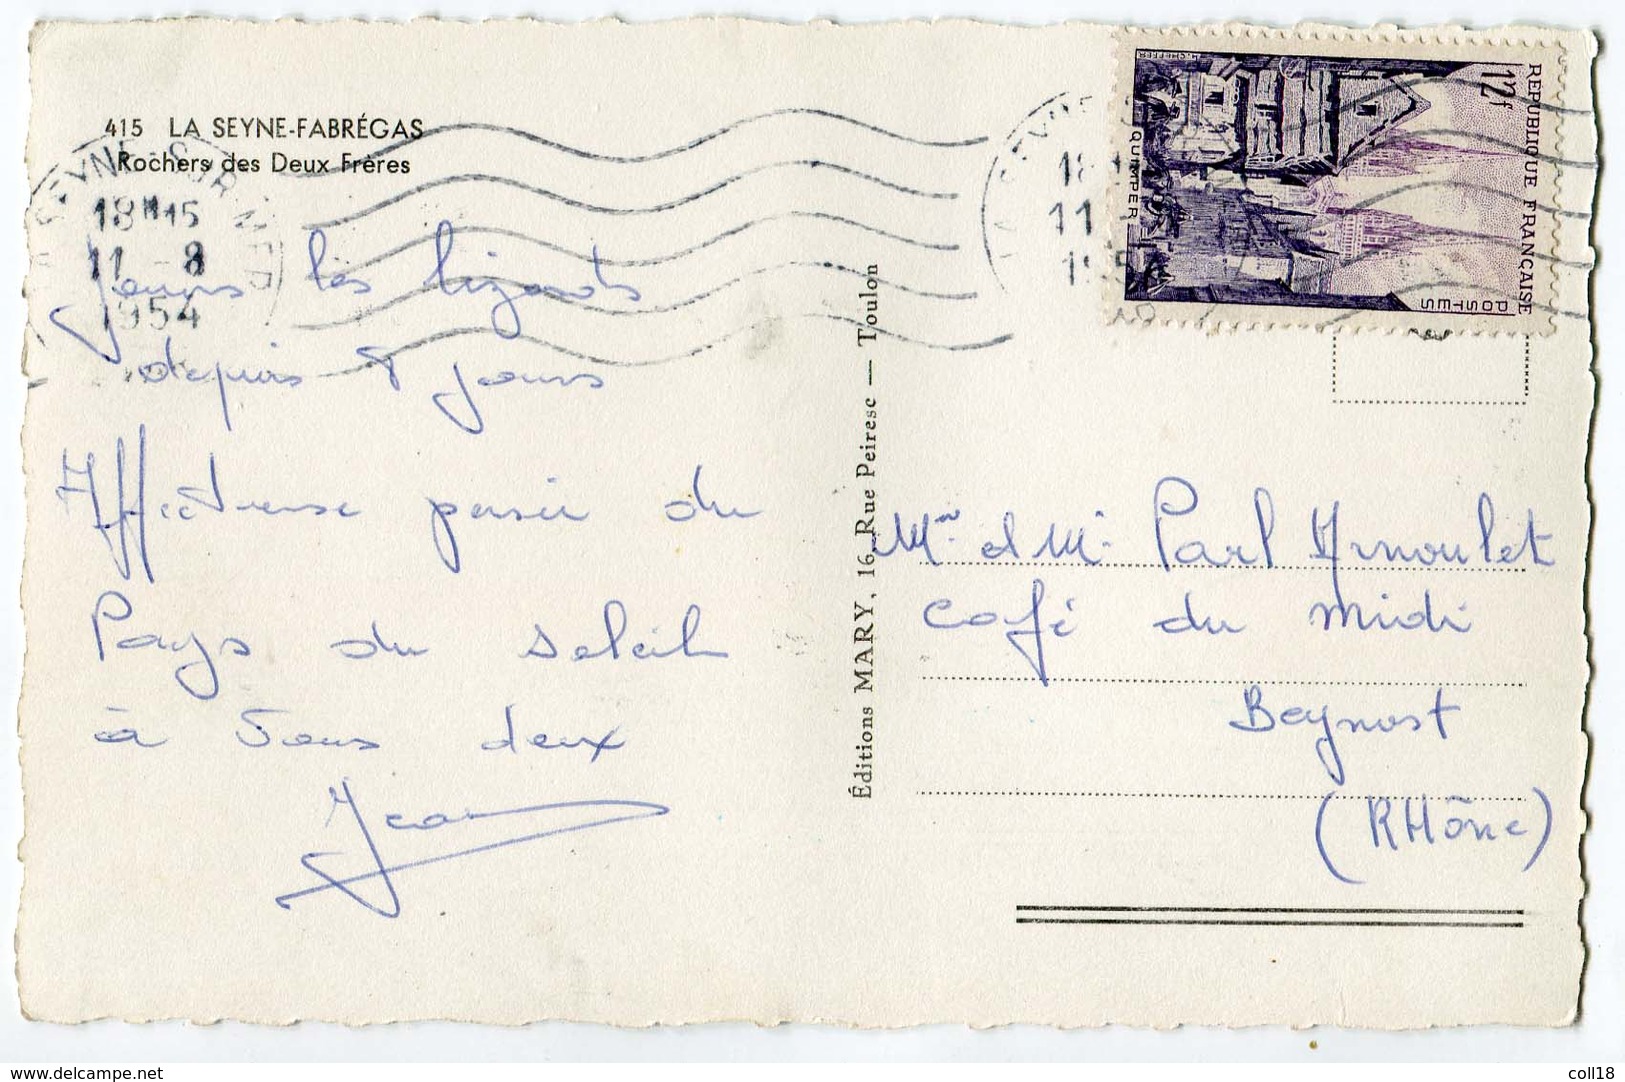 415 LA SEYNE-FABRÉGAS
Rochers des Deux Frères
18H15
11 - 8
1954
les lizards
depuis 8 jours
Affectueuse pensée du
Pays du soleil
à vous deux
Jean
Éditions MARY, 16, Rue Peiresc — Toulon
REPUBLIQUE FRANÇAISE
POSTES
12f
QUIMPER
Mr et Me Paul Arnoulet
Café du midi
Beynost
(RHône)
www.delcampe.net
coll18